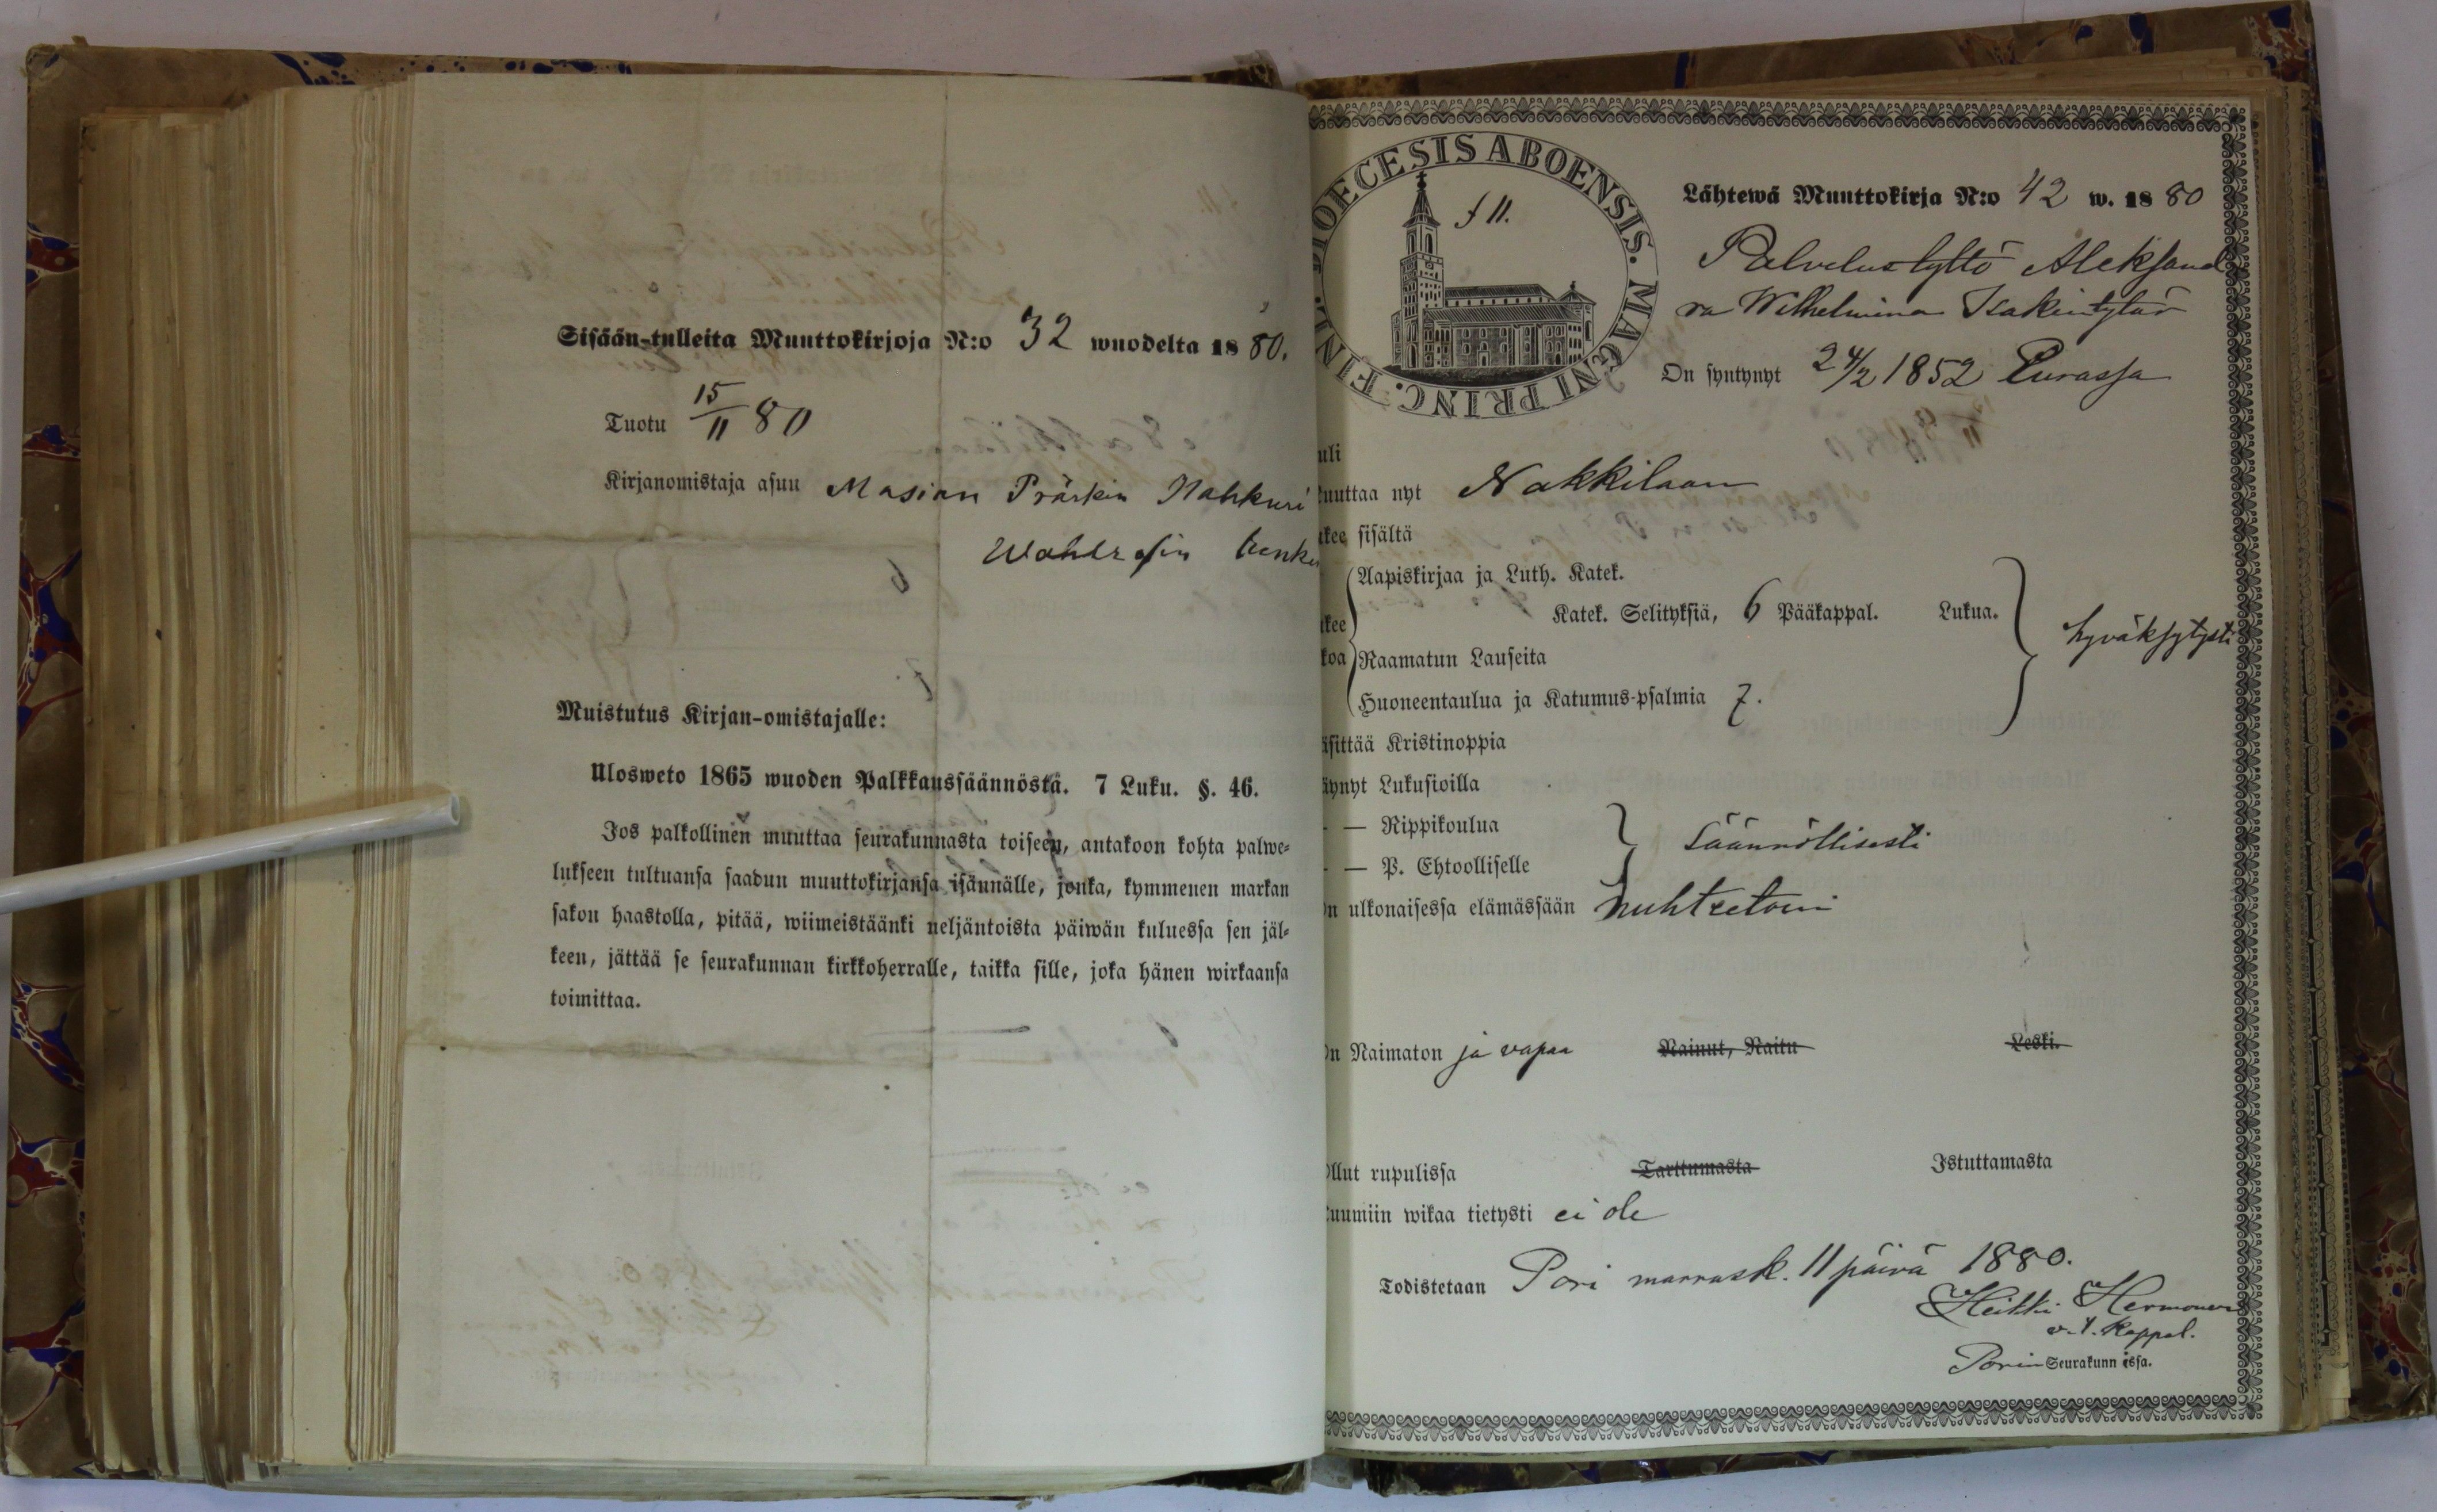 Sisään-tulleita Muuttokirjoja N:o 32 wuodelta 1880.
Tuotu 15/11 80
Kirjanomistaja asuu Masian Prärkin Nahkuri
Muistutus Kirjan-omistajalle:
Ulosweto 1865 wuoden Palkkaussäännöstä. 7 Luku. §. 46.
Jos palkollinen muuttaa seurakunnasta toiseen, antakoon kohta palwe-
lukseen tultuansa saadun muuttokirjansa isännälle, jonka, kymmenen markan
sakon haastolla, pitää, wiimeistäänki neljäntoista päiwän kuluessa sen jäl-
keen, jättää se seurakunnan kirkkoherralle, taikka sille, joka hänen wirkaansa
toimittaa.
DIOECESIS ABOENSIS. MAGNI PRINC. FINL.
f 11.
Lähtewä Muuttokirja N:o 42 w. 1880
Palvelustyttö Aleksand
ra Wilhelmina Isakintytär
On syntynyt 24/2 1852 Eurassa
uli
uuttaa nyt Nakkilaan
kee sisältä
Aapiskirjaa ja Luth. Katek.
kee Katek. Selityksiä, 6 Pääkappal. Lukua. hyväksytysti
koa Raamatun Lauseita
Huoneentaulua ja Katumus-psalmia 7.
äsittää Kristinoppia
äynyt Lukusioilla
- — Rippikoulua
- — P. Ehtoolliselle Säännöllisesti
n ulkonaisessa elämässään nuhteetoin
On Naimaton ja vapaa Nainut, Naitu Leski.
Ollut rupulissa Tarttumasta Istuttamasta
uumiin wikaa tietysti ei ole
Todistetaan Pori marrask. 11 päivä 1880.
Heikki Hermonen
v.t. kappal.
Porin Seurakunnissa.